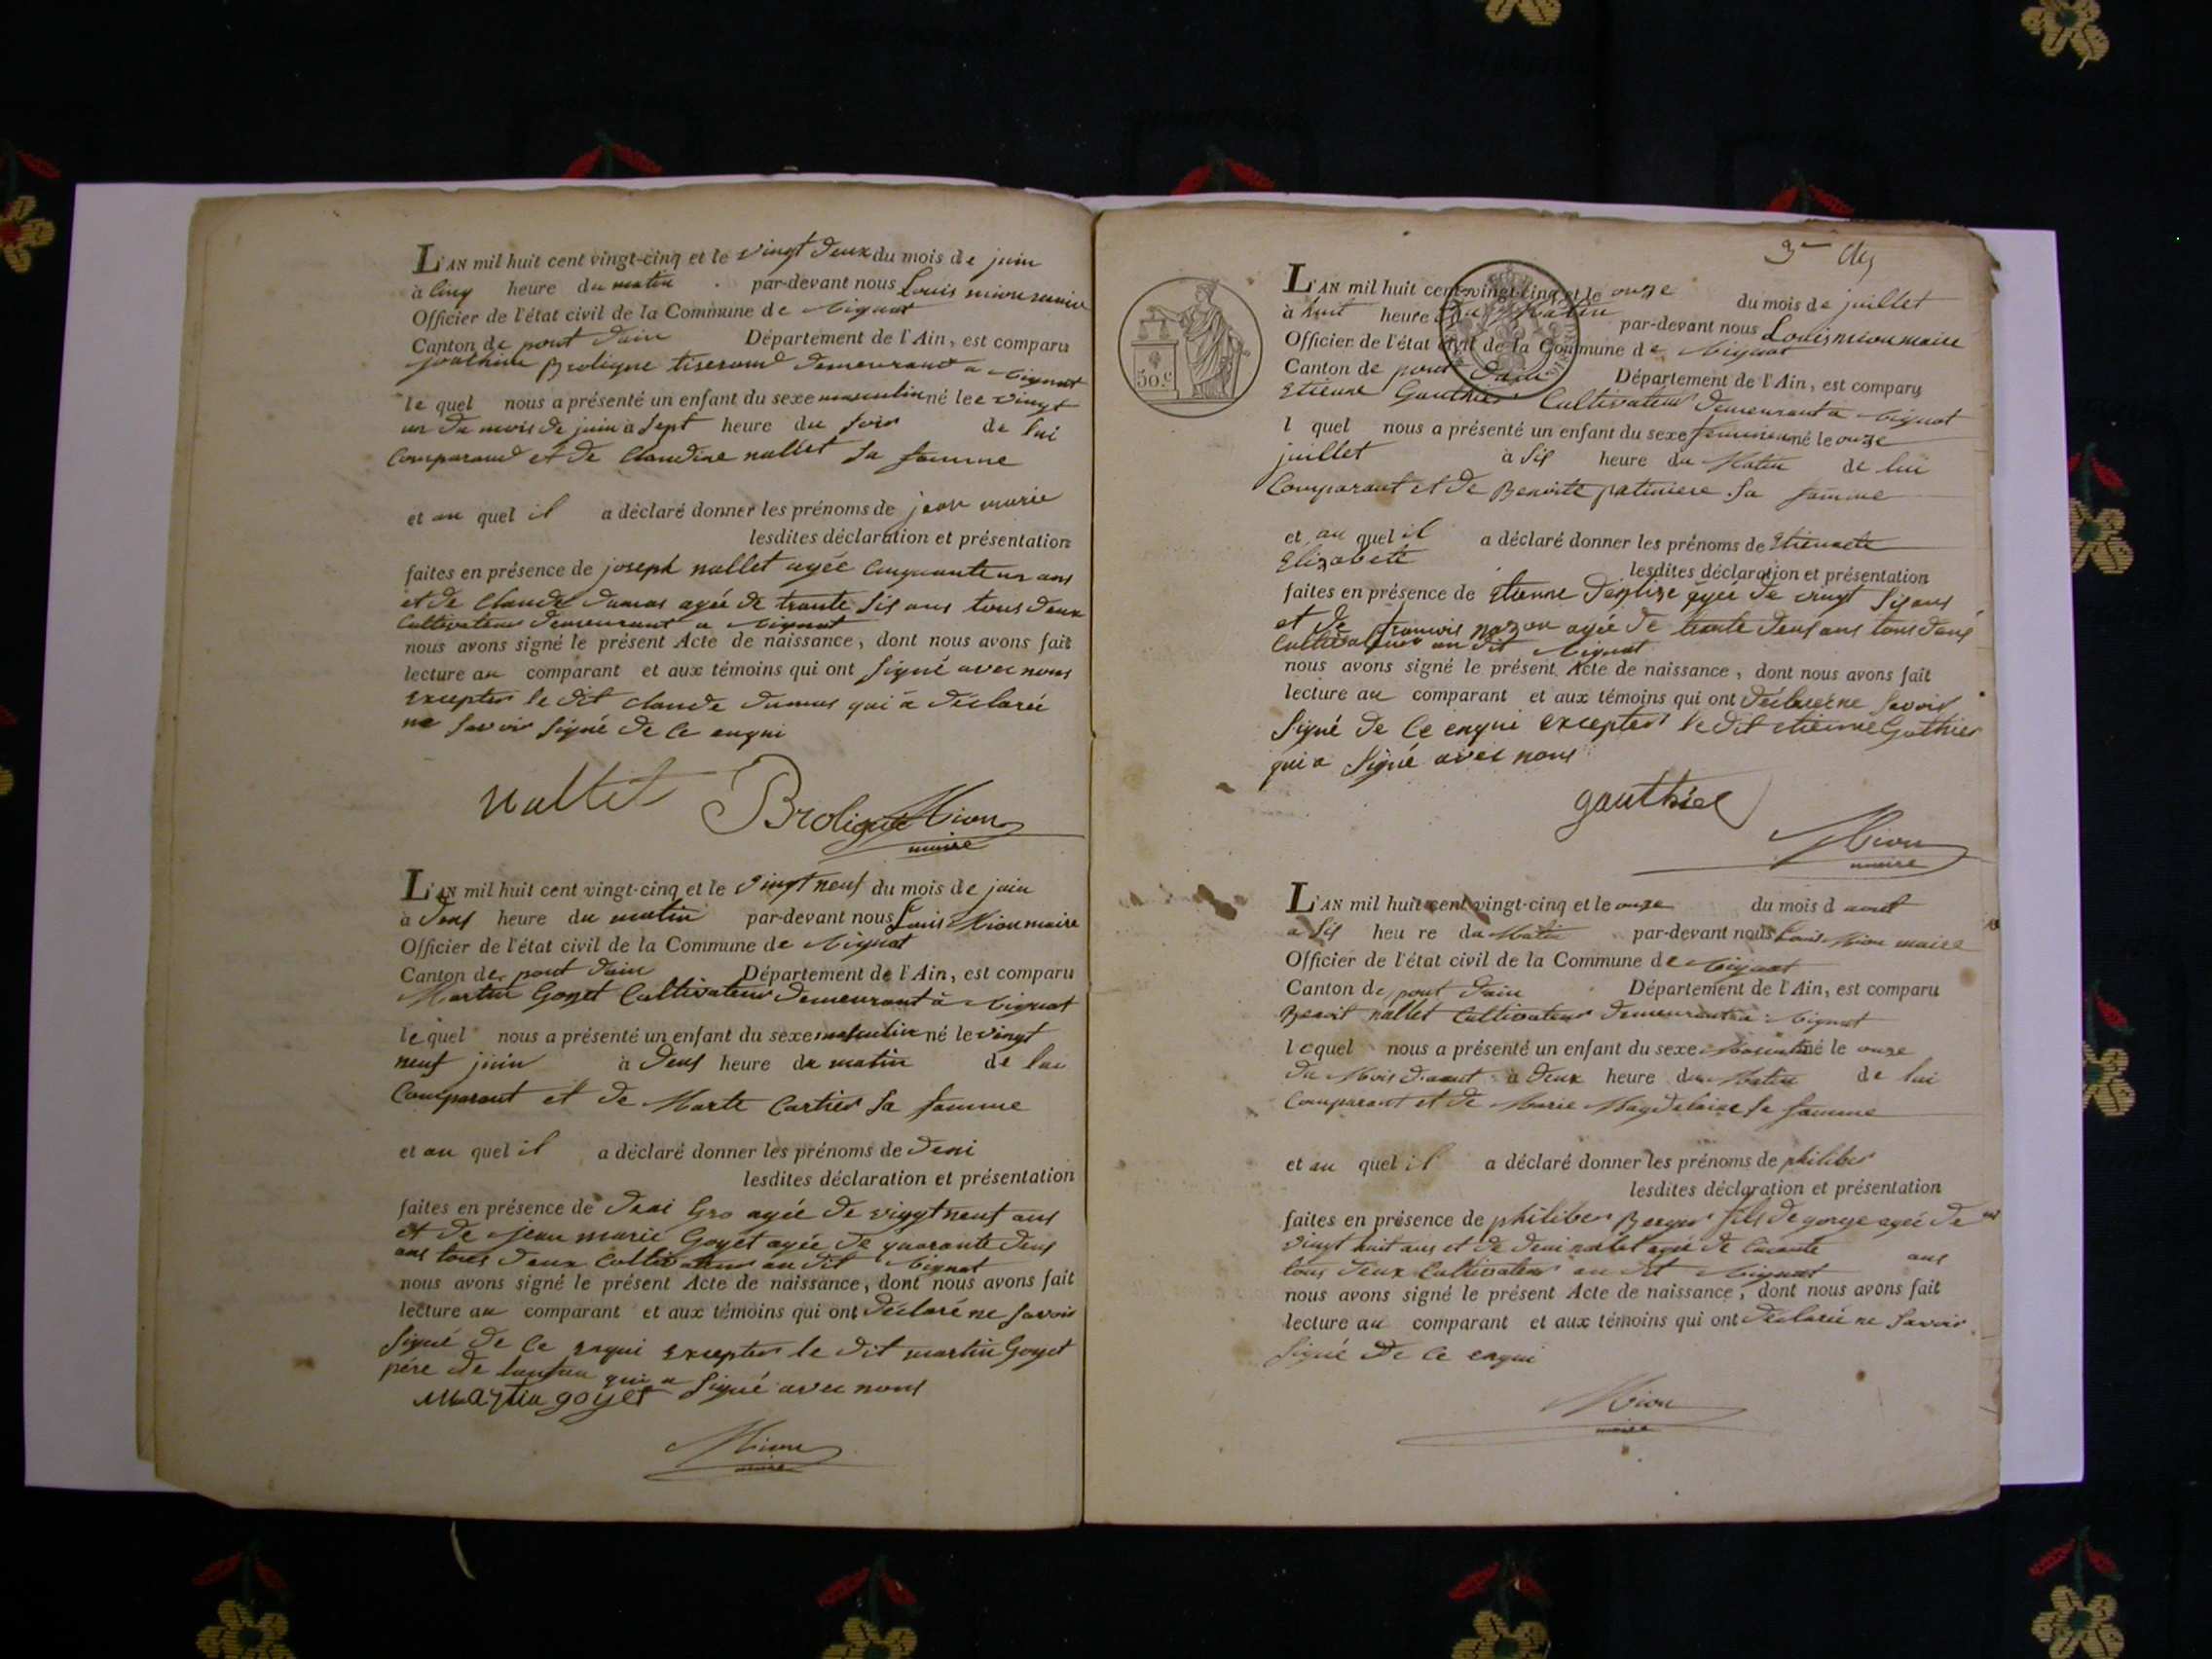 L'AN mil huit cent vingt-cinq et le vingt deux du mois de juin
à cinq heure du matin par-devant nous Louis mion maire
Officier de l'état civil de la Commune de
Canton de pont dain Département de l'Ain, est comparu
joachim Brolique tiserand demeurand a
le quel nous a présenté un enfant du sexe masculin né le vingt
un du mois de juin à sept heure du soir de lui
Comparand et de Claudine nallet sa famme
et au quel il a déclaré donner les prénoms de jean marie
lesdites déclaration et présentation
faites en présence de joseph nallet agée cinquante un ans
et de Claude dumas agée de trante sis ans tous deux
Cultivateur demeurant a
nous avons signé le présent Acte de naissance, dont nous avons fait
lecture au comparant et aux témoins qui ont signé avec nous
excepter le dit claude dumas qui a déclaréé
ne savoir signé de ce enqui
nallet Brolique Mion
maire
L'AN mil huit cent vingt-cinq et le vingt neuf du mois de juin
à deus heure du matin par-devant nous Louis Mion maire
Officier de l'état civil de la Commune de
Canton de pont dain Département de l'Ain, est comparu
Martin Goyet Cultivateur demeurant à
le quel nous a présenté un enfant du sexe masculin né le vingt
neuf juin à deus heure du matin de lui
Comparant et de Marte Cartier sa famme
et au quel il a déclaré donner les prénoms de deni
lesdites déclaration et présentation
faites en présence de deni Gro agée de vingt neuf ans
et de jean marie Goyet agée de quarante deus
ans tous deux Cultivateur au dit
nous avons signé le présent Acte de naissance, dont nous avons fait
lecture au comparant et aux témoins qui ont déclaré ne savoir
signé de ce enqui excepter le dit martin Goyet
pére de qui a signé avec nous
Martin goyet
Mion
maire
3me
50 c
L'AN mil huit cent vingt-cinq et le onze du mois de juillet
à huit heure du Matin par-devant nous Louis mion maire
Officier de l'état civil de la Commune de
Canton de pont dain Département de l'Ain, est comparu
Etienne Gauthier Cultivateur demeurant a
l quel nous a présenté un enfant du sexe feminin né le onze
juillet à sis heure du Matin de lui
Comparant et de Benoite patiniere sa famme
et au quel il a déclaré donner les prénoms de Etiennete
Elizabete
lesdites déclaration et présentation
faites en présence de Etienne agée de vingt sis ans
et de francois agée de trante deus ans tous deus
Cultivateur au dit
nous avons signé le présent Acte de naissance, dont nous avons fait
lecture au comparant et aux témoins qui ont déclaré ne savoir
signé de ce enqui excepter le dit etienne Gothier
qui a signé avec nous
gauthier
Mion
maire
L'AN mil huit cent vingt-cinq et le onze du mois d aout
a sis heure du Matin par-devant nous Louis Mion maire
Officier de l'état civil de la Commune de
Canton de pont dain Département de l'Ain, est comparu
Benoit nallet Cultivateur demeurant a
lequel nous a présenté un enfant du sexe Masculin né le onze
du Mois d'aout à deux heure du Matin de lui
Comparant et de Marie Magdelaine sa famme
et au quel il a déclaré donner les prénoms de philiber
lesdites déclaration et présentation
faites en présence de philiber Berger fils de gorge agée de
vingt huit ans et de deni nallet agée de ans
tous deux Cultivateur au dit
nous avons signé le présent Acte de naissance, dont nous avons fait
lecture au comparant et aux témoins qui ont déclarée ne savoir
signé de ce enqui
Mion
maire